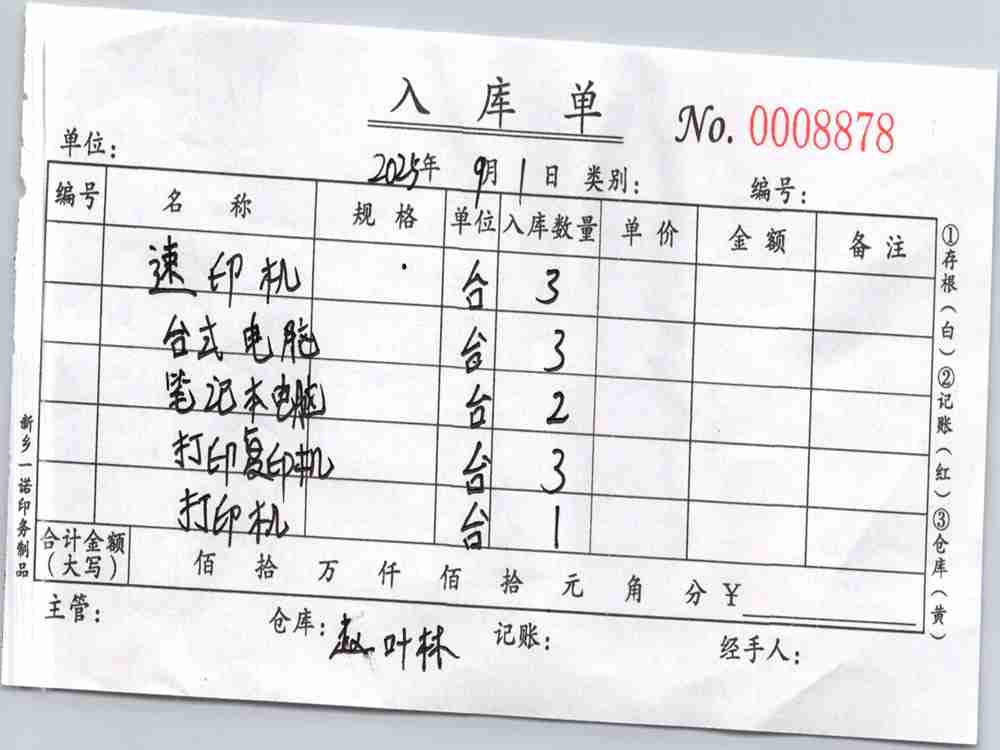 入库单
No. 0008878
单位：
2025年 9月 1日 类别：
编号：
编号 名称 规格 单位 入库数量 单价 金额 备注
速印机 台 3
台式电脑 台 3
笔记本电脑 台 2
打印复印机 台 3
打印机 台 1
合计金额（大写） 佰 拾 万 仟 佰 拾 元 角 分 ¥
主管： 仓库：赵叶林 记账： 经手人：
①存根（白）②记账（红）③仓库（黄）
新乡一诺印务制品